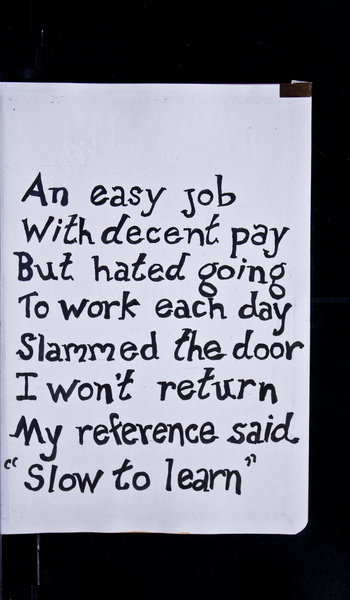 An easy job
With decent pay
But hated going
To work each day
Slammed the door
I won't return
My reference said
"Slow to learn"